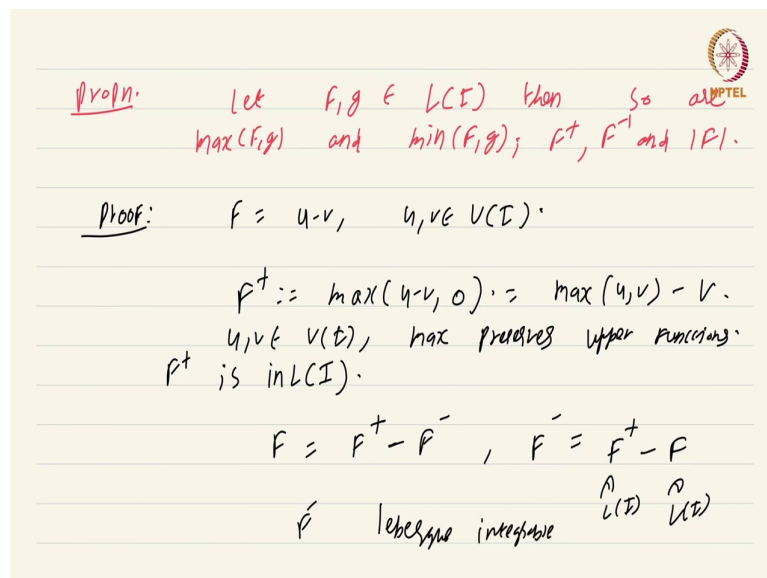 NPTEL
Propn. Let F, g ∈ L(I) then so are
max(F,g) and min(F,g); F⁺, F⁻¹ and |F|.
Proof: F = u-v, u,v ∈ U(I).
F⁺ := max(u-v, 0). = max(u,v) - v.
u,v ∈ U(I), max preserves upper functions.
F⁺ is in L(I).
F = F⁺ - F⁻, F⁻ = F⁺ - F
∩ ∩
L(I) L(I)
F⁻ lebesgue integrable